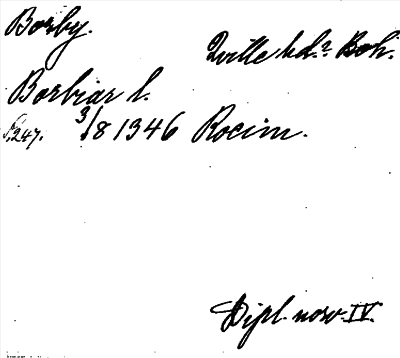 Borby.
Qville hd? Boh.
Borbiar l.
S. 247. 3/8 1346 Rocim.
Dipl. norv. IV.